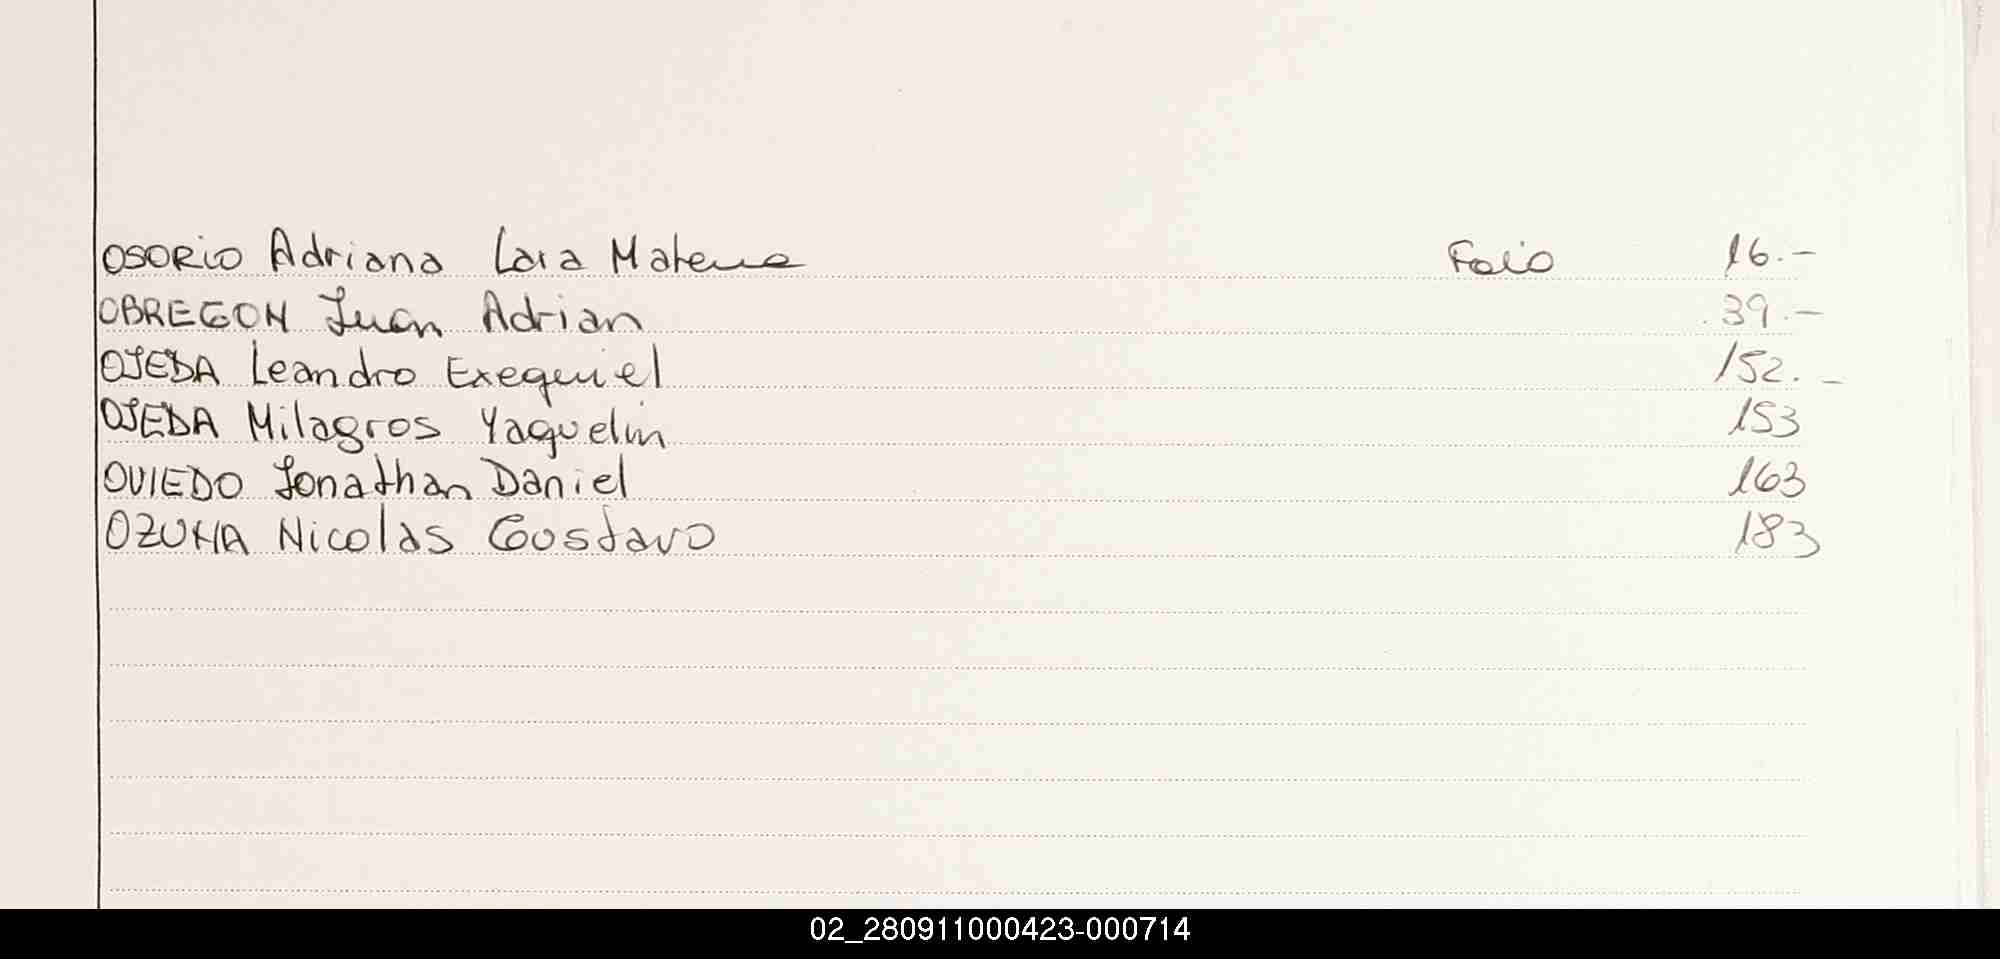 OSORIO Adriana Lara Malena Folio 16.-
OBREGON Juan Adrian 39.-
OJEDA Leandro Exequiel 152.-
OJEDA Milagros Yaquelin 153
OVIEDO Jonathan Daniel 163
OZUNA Nicolas Gustavo 183
02_280911000423-000714